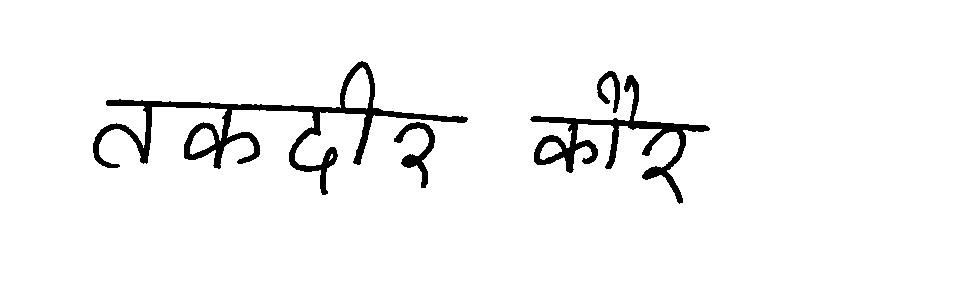 तकदीर कौर